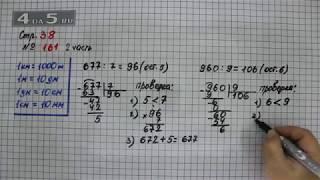 4 DA 5 RU
Стр. 38
№ 161 2 часть
1км = 1000м
1м = 10дм
1дм = 10см
1см = 10мм
677 : 7 = 96 (ост. 5)
-677 | 7
63 | 96
-47
42
5
проверка:
1) 5 < 7
2) × 96
7
672
3) 672 + 5 = 677
960 : 9 = 106 (ост. 6)
-960 | 9
9 | 106
-60
54
6
проверка:
1) 6 < 9
2)